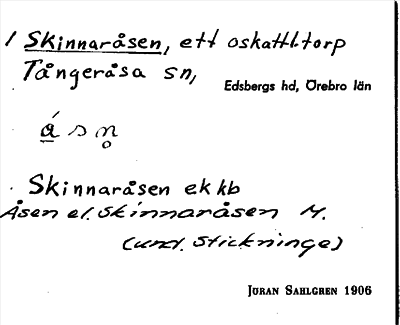 1 Skinnaråsen, ett oskattl. torp
Tångeråsa sn,
Edsbergs hd, Örebro län
Skinnaråsen ekkb
Åsen el. Skinnaråsen M.
(und. Stickninge)
JÖRAN SAHLGREN 1906